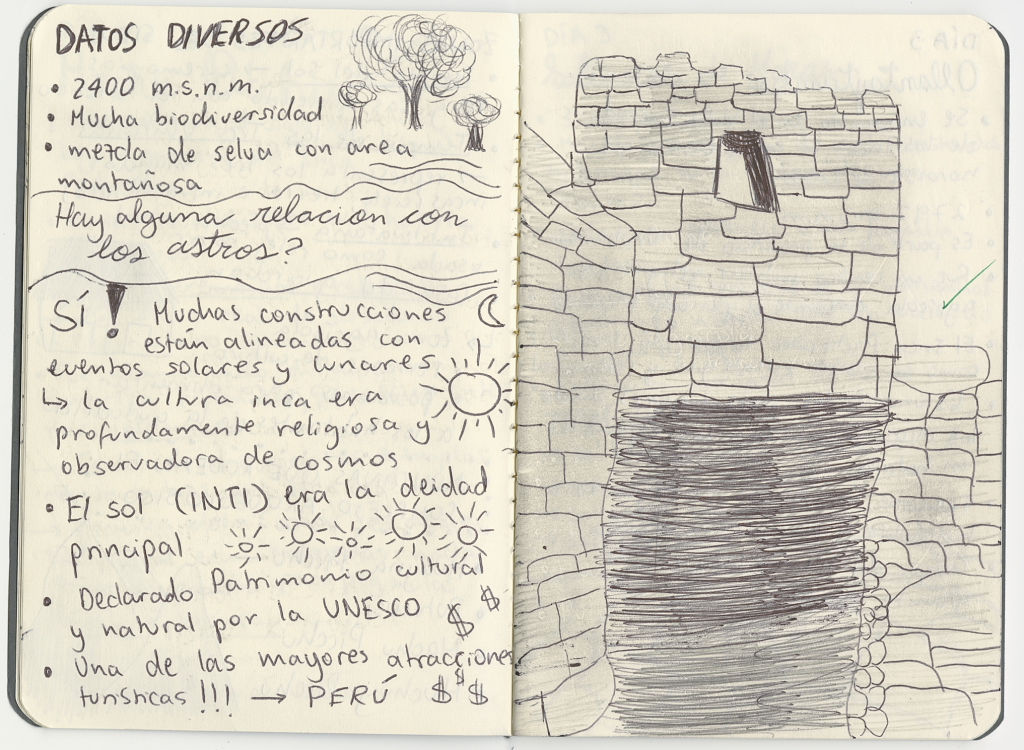 DATOS DIVERSOS
• 2400 m.s.n.m.
• Mucha biodiversidad
• mezcla de selva con area
montañosa
Hay alguna relacion con
los astros?
SÍ! Muchas construcciones
están alineadas con
eventos solares y lunares
↳ la cultura inca era
profundamente religiosa y
observadora de cosmos
• El sol (INTI) era la deidad
principal
• Declarado Patrimonio cultural
y natural por la UNESCO $ $
• Una de las mayores atracciones
turísticas!!! → PERÚ $ $ $